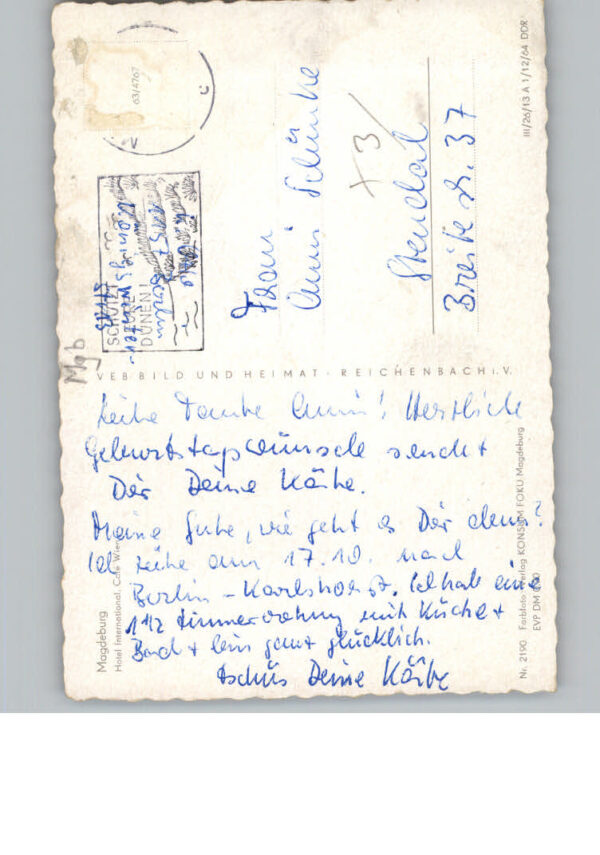 Liebe Tante Anni! Herzliche
Geburtstagswünsche sendet
Dir Deine Käthe.
Meine Gute, wie geht es Dir denn?
Ich ziehe am 17.10. nach
Berlin-Karlshorst. Ich habe eine
1 1/2 Zimmerwohnung mit Küche +
Bad + bin ganz glücklich.
tschüs Deine Käthe
Frau
Anni
Stendal
Breite Str. 37
+3/
Mgb
SCHÜTZT
EURE
DÜNEN!
Berlin
63/4767
VEB BILD UND HEIMAT · REICHENBACH i. V.
III/26/13 A 1/12/64 DDR
Magdeburg
Hotel International, Café Wien
Nr. 2190 Farbfoto: Verlag KONSUM FOKU Magdeburg
EVP DM